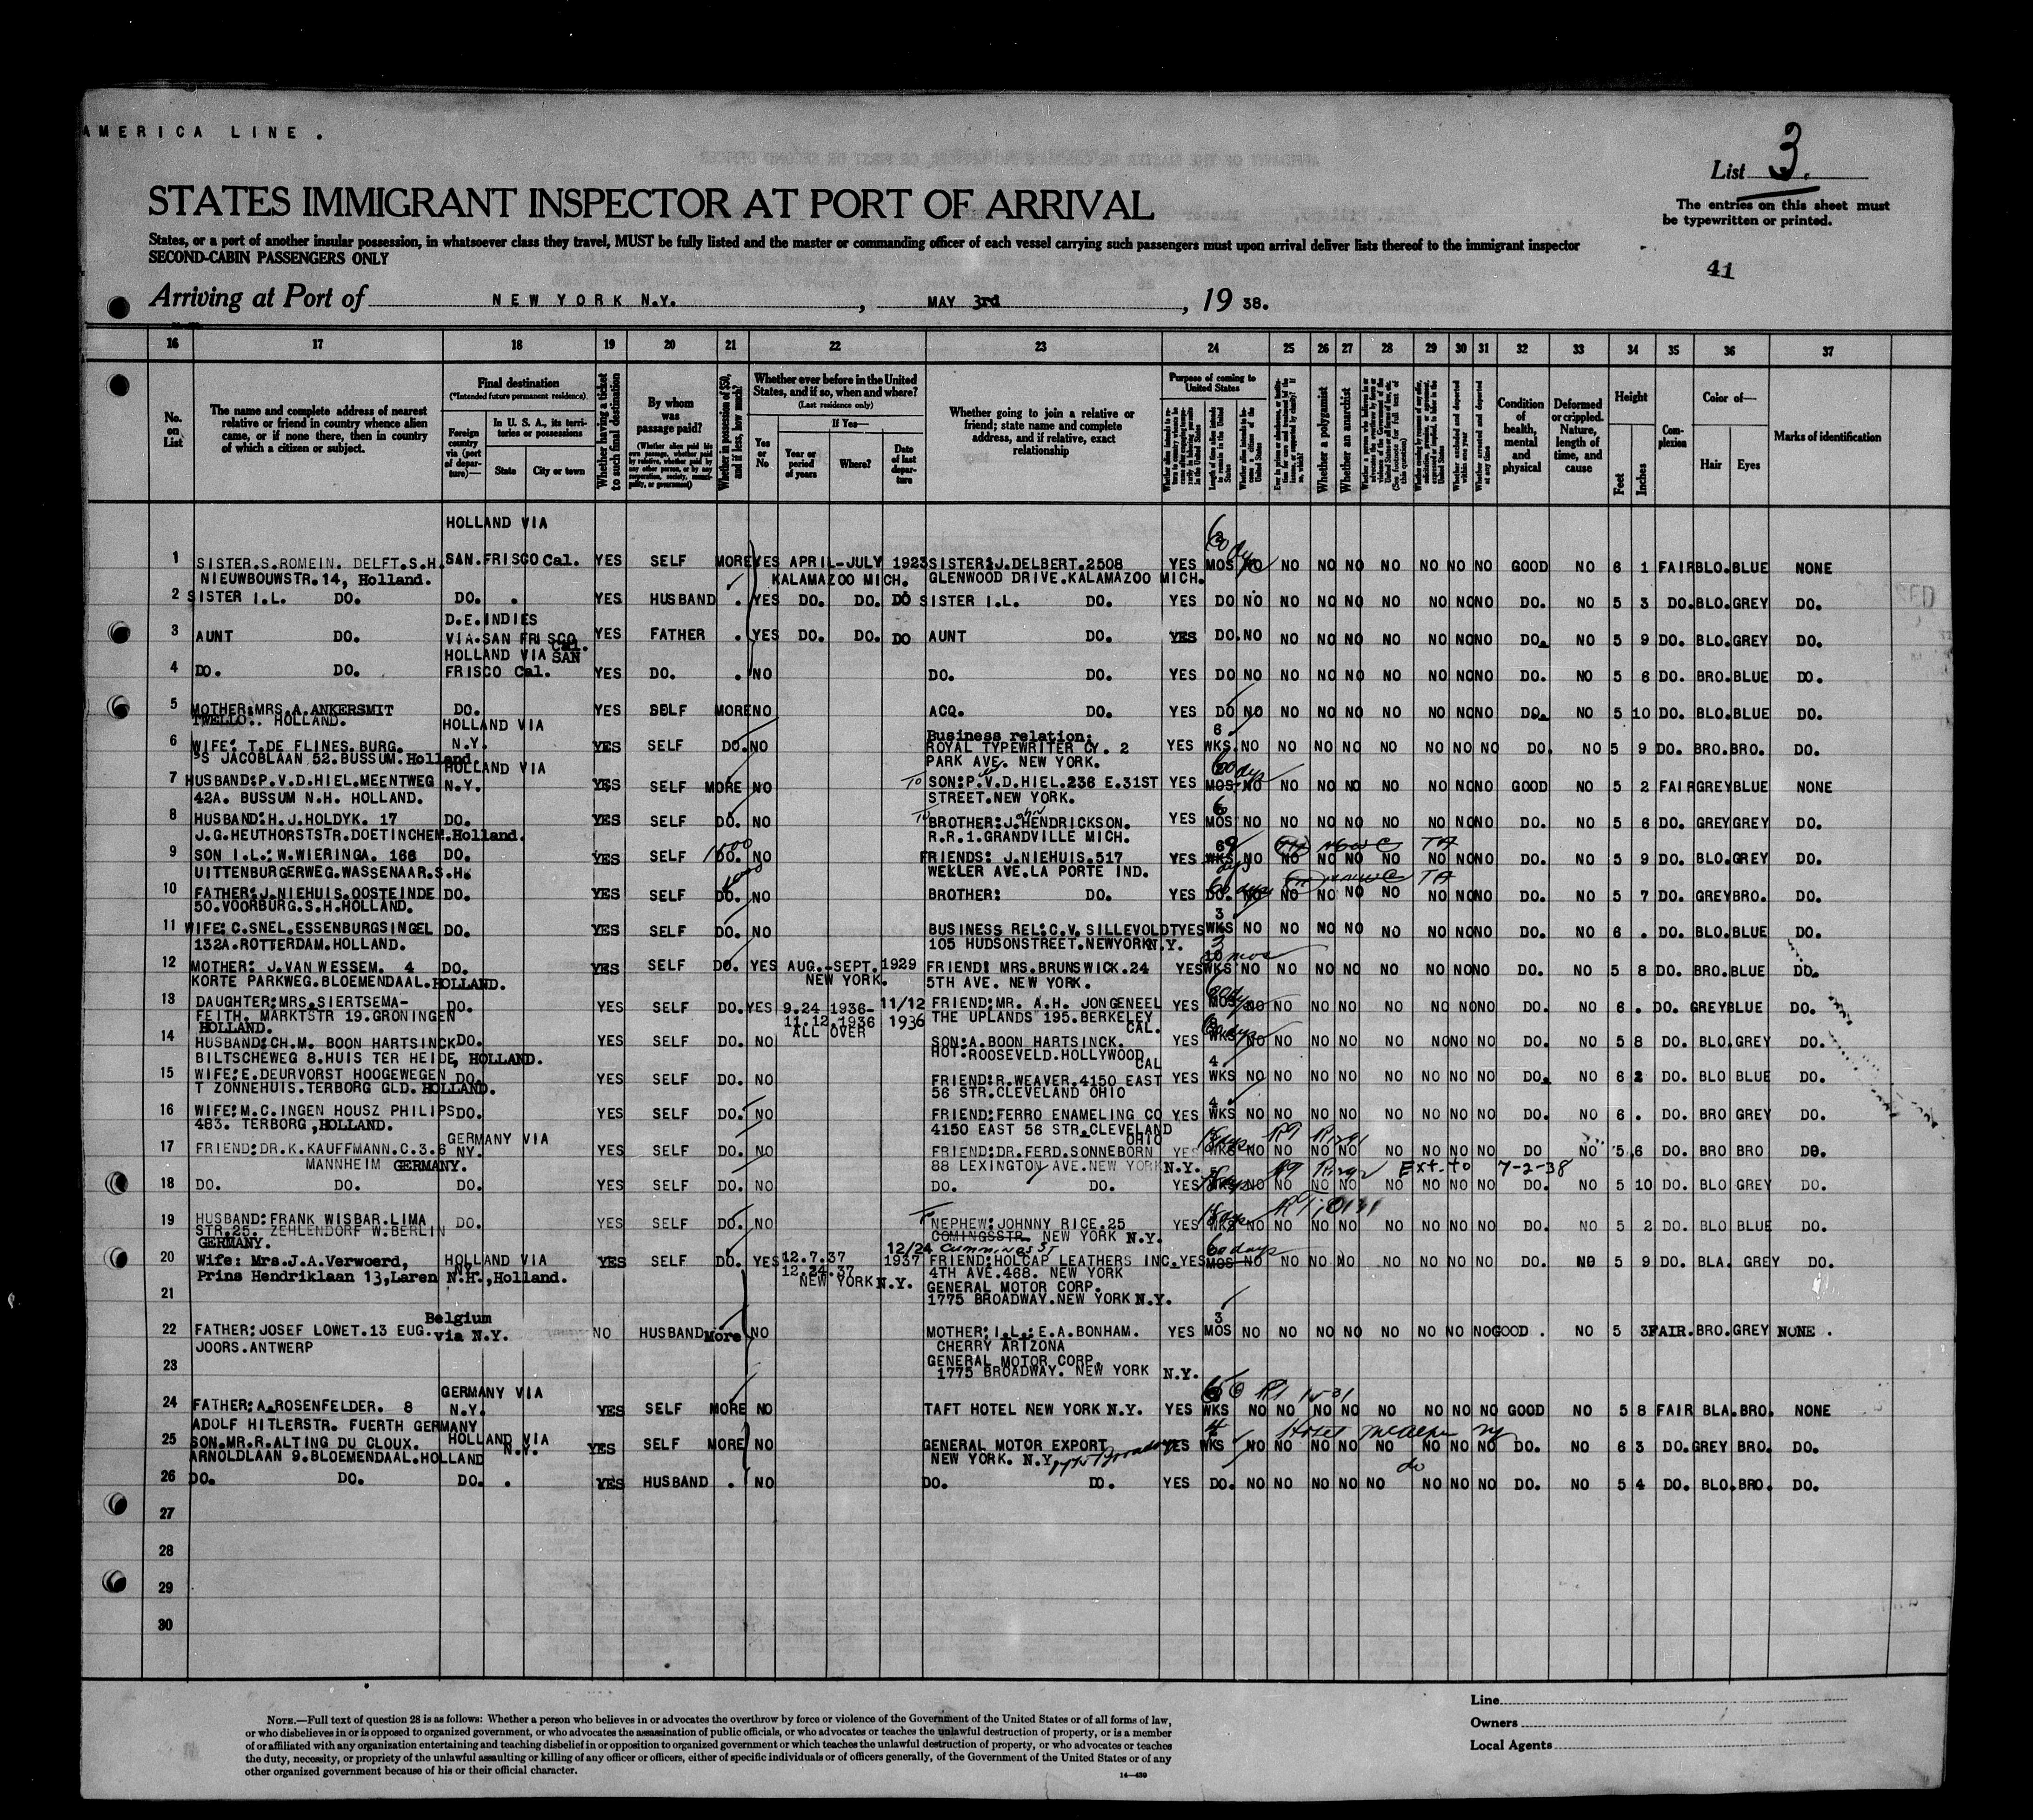 AMERICA LINE.
List 3.
STATES IMMIGRANT INSPECTOR AT PORT OF ARRIVAL
The entries on this sheet must
be typewritten or printed.
States, or a port of another insular possession, in whatsoever class they travel, MUST be fully listed and the master or commanding officer of each vessel carrying such passengers must upon arrival deliver lists thereof to the immigrant inspector
SECOND-CABIN PASSENGERS ONLY
41
Arriving at Port of NEW YORK N.Y., MAY 3rd, 1938.
16 17 18 19 20 21 22 23 24 25 26 27 28 29 30 31 32 33 34 35 36 37
No. on List
The name and complete address of nearest relative or friend in country whence alien came, or if none there, then in country of which a citizen or subject.
Final destination
(*Intended future permanent residence)
Foreign country via (port of departure)—
In U. S. A., its territories or possessions
State
City or town
Whether having a ticket to such final destination
By whom was passage paid?
Whether in possession of $50, and if less, how much?
Whether ever before in the United States, and if so, when and where?
(Last residence only)
Yes or No
If Yes—
Year or period of years
Where?
Date of last departure
Whether going to join a relative or friend; state name and complete address, and if relative, exact relationship
Purpose of coming to United States
Whether a polygamist
Whether an anarchist
Condition of health, mental and physical
Deformed or crippled. Nature, length of time, and cause
Height
Feet
Inches
Complexion
Color of—
Hair
Eyes
Marks of identification
HOLLAND VIA
1 SISTER.S.ROMEIN. DELFT.S.H. SAN.FRISCO Cal. YES SELF MORE YES APRIL-JULY 1923 SISTER:J.DELBERT.2508 YES MOS NO NO NO NO NO NO NO NO GOOD NO 6 1 FAIR BLO. BLUE NONE
NIEUWBOUWSTR.14, Holland. KALAMAZOO MICH. GLENWOOD DRIVE.KALAMAZOO MICH.
2 SISTER I.L. DO. DO. . YES HUSBAND . YES DO. DO. DO SISTER I.L. DO. YES DO NO NO NO NO NO NO NO NO DO. NO 5 3 DO. BLO. GREY DO.
D.E.INDIES
3 AUNT DO. VIA.SAN FRISCO Cal. YES FATHER . YES DO. DO. DO AUNT DO. YES DO. NO NO NO NO NO NO NO NO DO. NO 5 9 DO. BLO. GREY DO.
HOLLAND VIA SAN
4 DO. DO. FRISCO Cal. YES DO. . NO DO. DO. YES DO NO NO NO NO NO NO NO NO DO. NO 5 6 DO. BRO. BLUE DO.
5 MOTHER:MRS.A.ANKERSMIT DO. YES SELF MORE NO ACQ. DO. YES DO NO NO NO NO NO NO NO NO DO. NO 5 10 DO. BLO. BLUE DO.
TWELLO.. HOLLAND. HOLLAND VIA
Business relation; 6
6 WIFE: T.DE FLINES.BURG. N.Y. YES SELF DO. NO ROYAL TYPEWRITER CY. 2 YES WKS. NO NO NO NO NO NO NO NO DO. NO 5 9 DO. BRO. BRO. DO.
'S JACOBLAAN 52.BUSSUM.Holland. PARK AVE. NEW YORK.
HOLLAND VIA 60 days
7 HUSBAND:P.V.D.HIEL.MEENTWEG N.Y. YES SELF MORE NO To SON:P.V.D.HIEL.236 E.31ST YES MOS NO NO NO NO NO NO NO NO GOOD NO 5 2 FAIR GREY BLUE NONE
42A. BUSSUM N.H. HOLLAND. STREET.NEW YORK.
8 HUSBAND:H.J.HOLDYK. 17 DO. YES SELF DO. NO To BROTHER:J.HENDRICKSON. YES 6 MOS NO NO NO NO NO NO NO NO DO. NO 5 6 DO. GREY GREY DO.
J.G.HEUTHORSTSTR.DOETINCHEM.Holland. R.R.1.GRANDVILLE MICH.
9 SON I.L.:W.WIERINGA. 166 DO. YES SELF DO. NO FRIENDS: J.NIEHUIS.517 YES WKS NO NO NO NO NO NO NO NO DO. NO 5 9 DO. BLO. GREY DO.
UITTENBURGERWEG.WASSENAAR.S.H. WELLER AVE.LA PORTE IND.
10 FATHER:J.NIEHUIS.OOSTEINDE DO. YES SELF DO. NO BROTHER: DO. YES DO. NO NO NO NO NO NO NO NO DO. NO 5 7 DO. GREY BRO. DO.
50.VOORBURG.S.H.HOLLAND.
11 WIFE:C.SNEL.ESSENBURGSINGEL DO. YES SELF DO. NO BUSINESS REL:C.V.SILLEVOLDT YES 3 WKS NO NO NO NO NO NO NO NO DO. NO 6 . DO. BLO. BLUE DO.
132A.ROTTERDAM.HOLLAND. 105 HUDSONSTREET.NEWYORK N.Y.
12 MOTHER: J.VAN WESSEM. 4 DO. YES SELF DO. YES AUG.-SEPT. 1929 FRIEND: MRS.BRUNSWICK.24 YES 3 mos WKS NO NO NO NO NO NO NO NO DO. NO 5 8 DO. BRO. BLUE DO.
KORTE PARKWEG.BLOEMENDAAL.HOLLAND. NEW YORK. 5TH AVE. NEW YORK.
13 DAUGHTER:MRS.SIERTSEMA- DO. YES SELF DO. YES 9.24 1936- 11/12 FRIEND:MR. A.H. JONGENEEL YES MOS NO NO NO NO NO NO NO NO DO. NO 6 . DO. GREY BLUE DO.
FEITH. MARKTSTR 19.GRONINGEN 11.12.1936 1936 THE UPLANDS 195.BERKELEY CAL.
HOLLAND. ALL OVER
14 HUSBAND:CH.M. BOON HARTSINCK DO. YES SELF DO. NO SON:A.BOON HARTSINCK. YES WKS NO NO NO NO NO NO NO NO DO. NO 5 8 DO. BLO. GREY DO.
BILTSCHEWEG 8.HUIS TER HEIDE, HOLLAND. HOT:ROOSEVELD.HOLLYWOOD CAL
15 WIFE:E.DEURVORST HOOGEWEGEN DO. YES SELF DO. NO FRIEND:R.WEAVER.4150 EAST YES 4 WKS NO NO NO NO NO NO NO NO DO. NO 6 2 DO. BLO BLUE DO.
T ZONNEHUIS.TERBORG GLD. HOLLAND. 56 STR.CLEVELAND OHIO
16 WIFE:M.C.INGEN HOUSZ PHILIPS DO. YES SELF DO. NO FRIEND:FERRO ENAMELING CO YES 4 WKS NO NO NO NO NO NO NO NO DO. NO 6 . DO. BRO GREY DO.
483. TERBORG,HOLLAND. 4150 EAST 56 STR.CLEVELAND OHIO
GERMANY VIA
17 FRIEND:DR.K.KAUFFMANN.C.3.6 NY. YES SELF DO. NO FRIEND:DR.FERD.SONNEBORN YES WKS NO NO NO NO NO NO NO NO DO NO 5 6 DO. BRO BRO DO.
MANNHEIM GERMANY. 88 LEXINGTON AVE.NEW YORK N.Y. Ext. to 7-2-38
18 DO. DO. DO. YES SELF DO. NO DO. DO. YES WKS NO NO NO NO NO NO NO NO DO. NO 5 10 DO. BLO GREY DO.
19 HUSBAND:FRANK WISBAR.LIMA DO. YES SELF DO. NO NEPHEW:JOHNNY RICE.25 YES WKS NO NO NO NO NO NO NO NO DO. NO 5 2 DO. BLO BLUE DO.
STR.25. ZEHLENDORF W.BERLIN COMINGSSTR. NEW YORK N.Y.
GERMANY. 12/24 Cummings St 60 days
20 Wife: Mrs.J.A.Verwoerd, HOLLAND VIA YES SELF DO. YES 12.7.37 1937 FRIEND:HOLCAP LEATHERS INC. YES MOS NO NO NO NO NO NO NO NO DO. NO 5 9 DO. BLA. GREY DO.
Prins Hendriklaan 13,Laren N.H.,Holland. NY. 12.24.37 4TH AVE.468. NEW YORK
NEW YORK N.Y. GENERAL MOTOR CORP.
21 1775 BROADWAY.NEW YORK N.Y.
Belgium 3
22 FATHER:JOSEF LOWET.13 EUG. via N.Y. NO HUSBAND More NO MOTHER:I.L.:E.A.BONHAM. YES MOS NO NO NO NO NO NO NO GOOD. NO 5 3 FAIR. BRO. GREY NONE.
JOORS.ANTWERP CHERRY ARIZONA
23 GENERAL MOTOR CORP.
1775 BROADWAY. NEW YORK N.Y.
GERMANY VIA
24 FATHER:A.ROSENFELDER. 8 N.Y. YES SELF MORE NO TAFT HOTEL NEW YORK N.Y. YES WKS NO NO NO NO NO NO NO NO GOOD NO 5 8 FAIR BLA. BRO. NONE
ADOLF HITLERSTR. FUERTH GERMANY
HOLLAND VIA 4 Hotel McAlpin ny
25 SON.MR.R.ALTING DU CLOUX. N.Y. YES SELF MORE NO GENERAL MOTOR EXPORT YES WKS NO NO NO NO NO NO NO NO DO. NO 6 3 DO. GREY BRO. DO.
ARNOLDLAAN 9.BLOEMENDAAL.HOLLAND NEW YORK. N.Y. 1775 Broadway do
26 DO. DO. DO. . YES HUSBAND . NO DO. DO. YES DO. NO NO NO NO NO NO NO NO DO. NO 5 4 DO. BLO. BRO. DO.
27
28
29
30
Line
Owners
Local Agents
NOTE.—Full text of question 28 is as follows: Whether a person who believes in or advocates the overthrow by force or violence of the Government of the United States or of all forms of law,
or who disbelieves in or is opposed to organized government, or who advocates the assassination of public officials, or who advocates or teaches the unlawful destruction of property, or is a member
of or affiliated with any organization entertaining and teaching disbelief in or opposition to organized government or which teaches the unlawful destruction of property, or who advocates or teaches
the duty, necessity, or propriety of the unlawful assaulting or killing of any officer or officers, either of specific individuals or of officers generally, of the Government of the United States or of any
other organized government because of his or their official character.
14—430